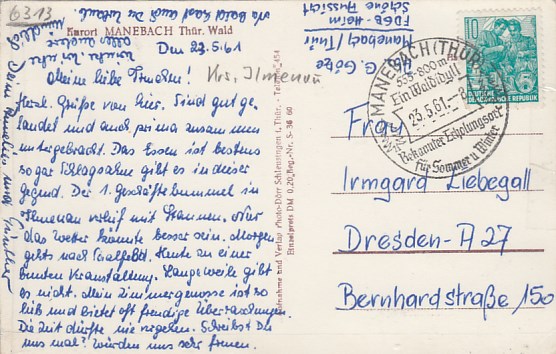 6313
Kurort MANEBACH Thür. Wald
Den 22.5.61
Meine liebe
Krs. Ilmenau
Herzl. Grüße von hier. Sind gut ge-
landet und auch prima zusammen
untergebracht. Das Essen ist bestens
sogar Schlagsahne gibt es in dieser
Gegend. Der 1. Geschäftebummel in
Ilmenau verlief mit Staunen. Nur
das Wetter könnte besser sein. Morgen
gehts nach Saalfeld. Heute zu einer
bunten Veranstaltung. Langeweile gibt
es nicht. Mein Zimmergenosse ist so
lieb und bietet oft freudige Überraschungen.
Die Zeit dürfte nie vergehen. Schreibst Du
uns mal? Würden uns sehr freuen.
Dein und Günther
Aufnahme und Verlag Photo-Dörr Schleusingen i. Thür. - Telefon 454
Einzelpreis DM 0,20
G. Götze
Manebach/Thür
FDGB-Heim
Schöne Aussicht
MANEBACH (THÜR
535-800m
Ein Waldidyll
23.5.61
Bekannter Erholungsort
für Sommer u. Winter
10
DEUTSCHE
DEMOKRATISCHE REPUBLIK
Frau
Irmgard Liebegall
Dresden-A 27
Bernhardstraße 150